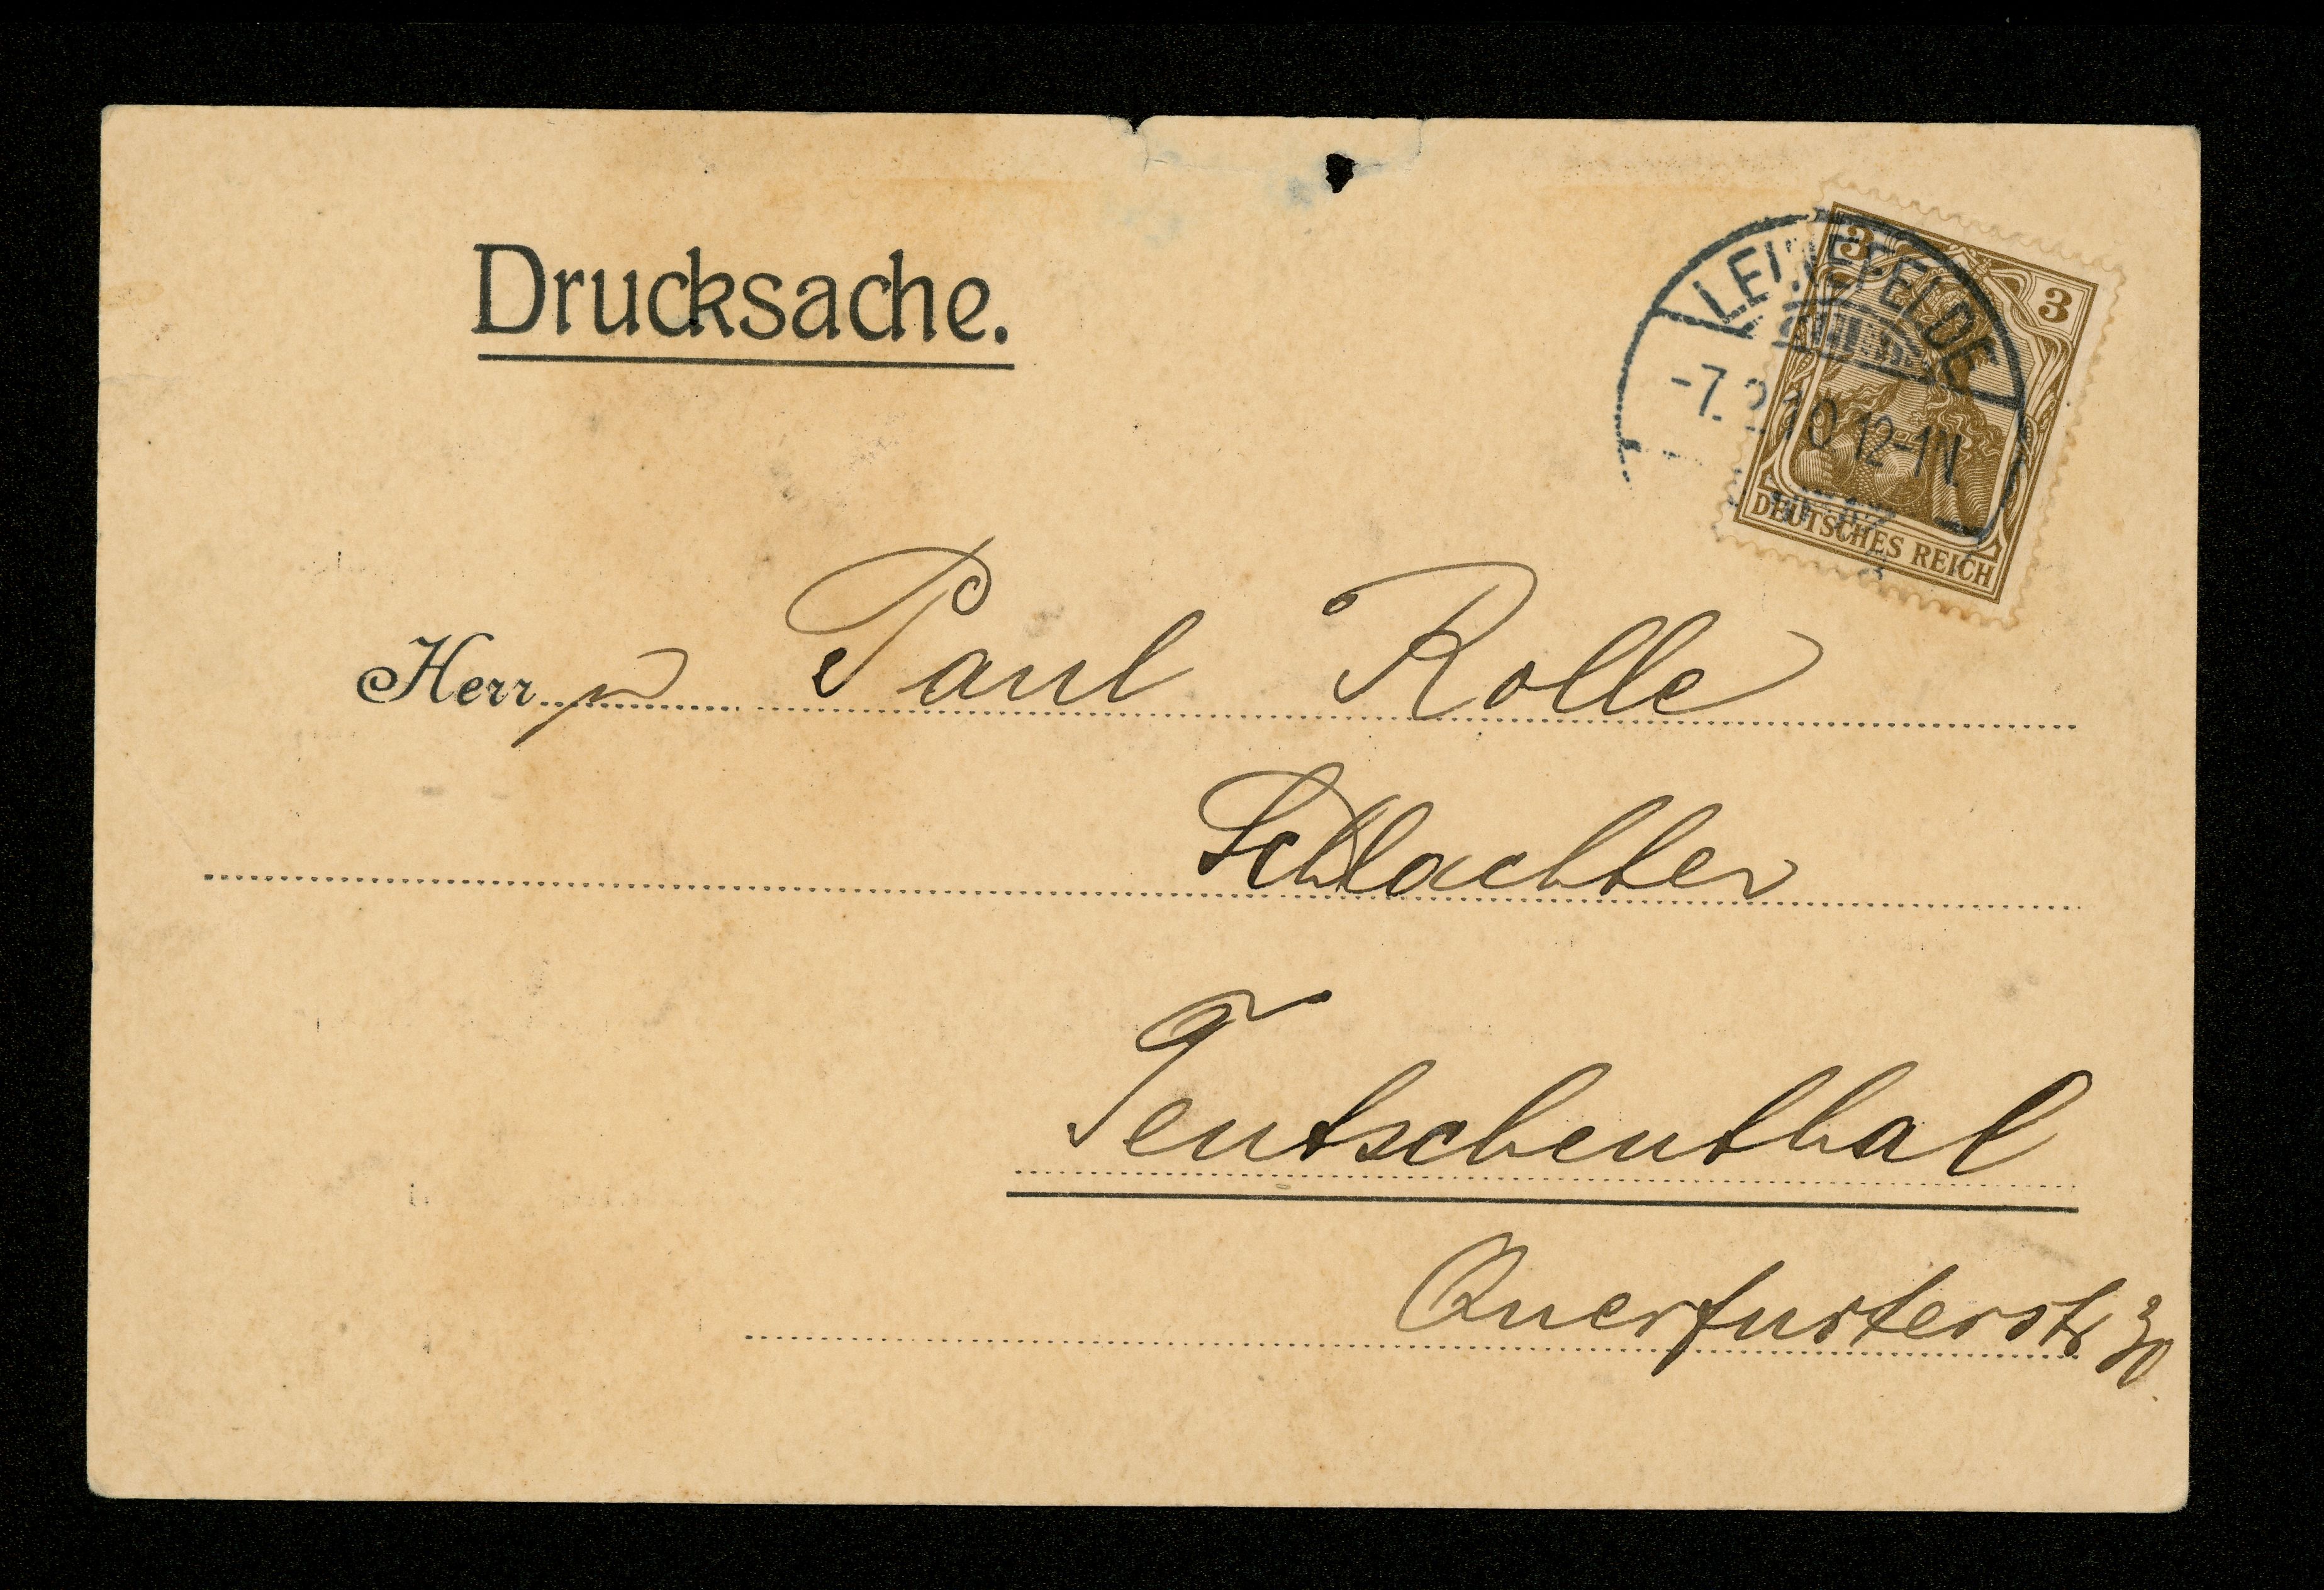 Drucksache.
3 3
LEINEFELDE
-7.2.10 12-1N
DEUTSCHES REICH
Herrn Paul Rolle
Schlachter
Teutschenthal
Querfurterstr 30